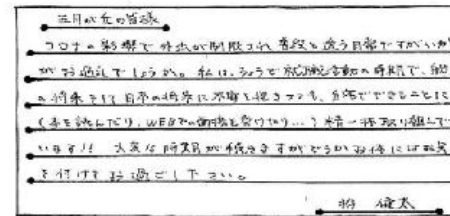 三月が丘の皆様
コロナの影響で外出が制限され普段と違う日常ですがいか
がお過ごしでしょうか。私は、ちょうど就職活動の時期で、自分
の将来そして日本の将来に不安を抱きつつも、自宅でできること
(本を読んだり、WEBでの面接を受けたり…)精一杯取り組んで
います!! 大変な時期が続きますがどうかお体にはお気
を付けてお過ごし下さい。
健太